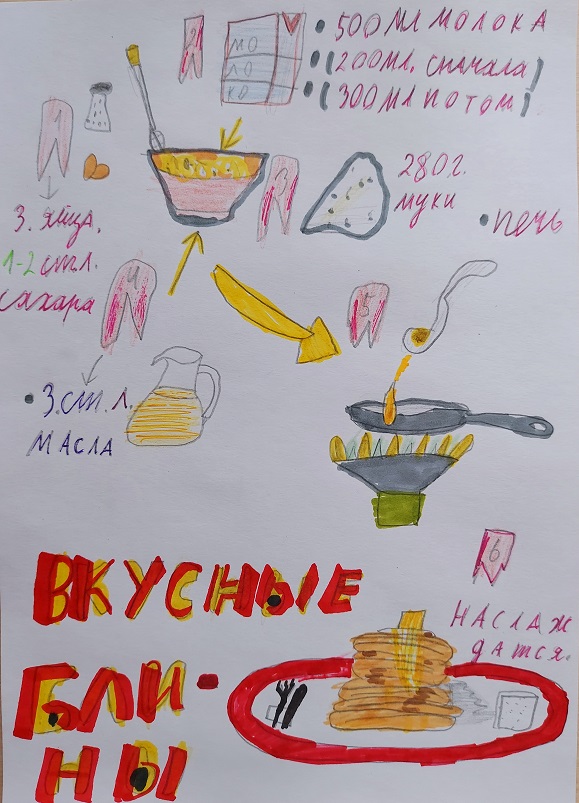 2
МО
ЛО
КО
• 500 МЛ МОЛОКА
• (200 МЛ. СНАЧАЛА)
• (300 МЛ ПОТОМ)
1
3. яйца,
1-2 стл.
сахара
3
280 г.
муки
• печь
4
• 3. ст. л.
МАСЛА
5
6
НАСЛАЖ
ДАТСЯ.
ВКУСНЫЕ
БЛИ-
НЫ